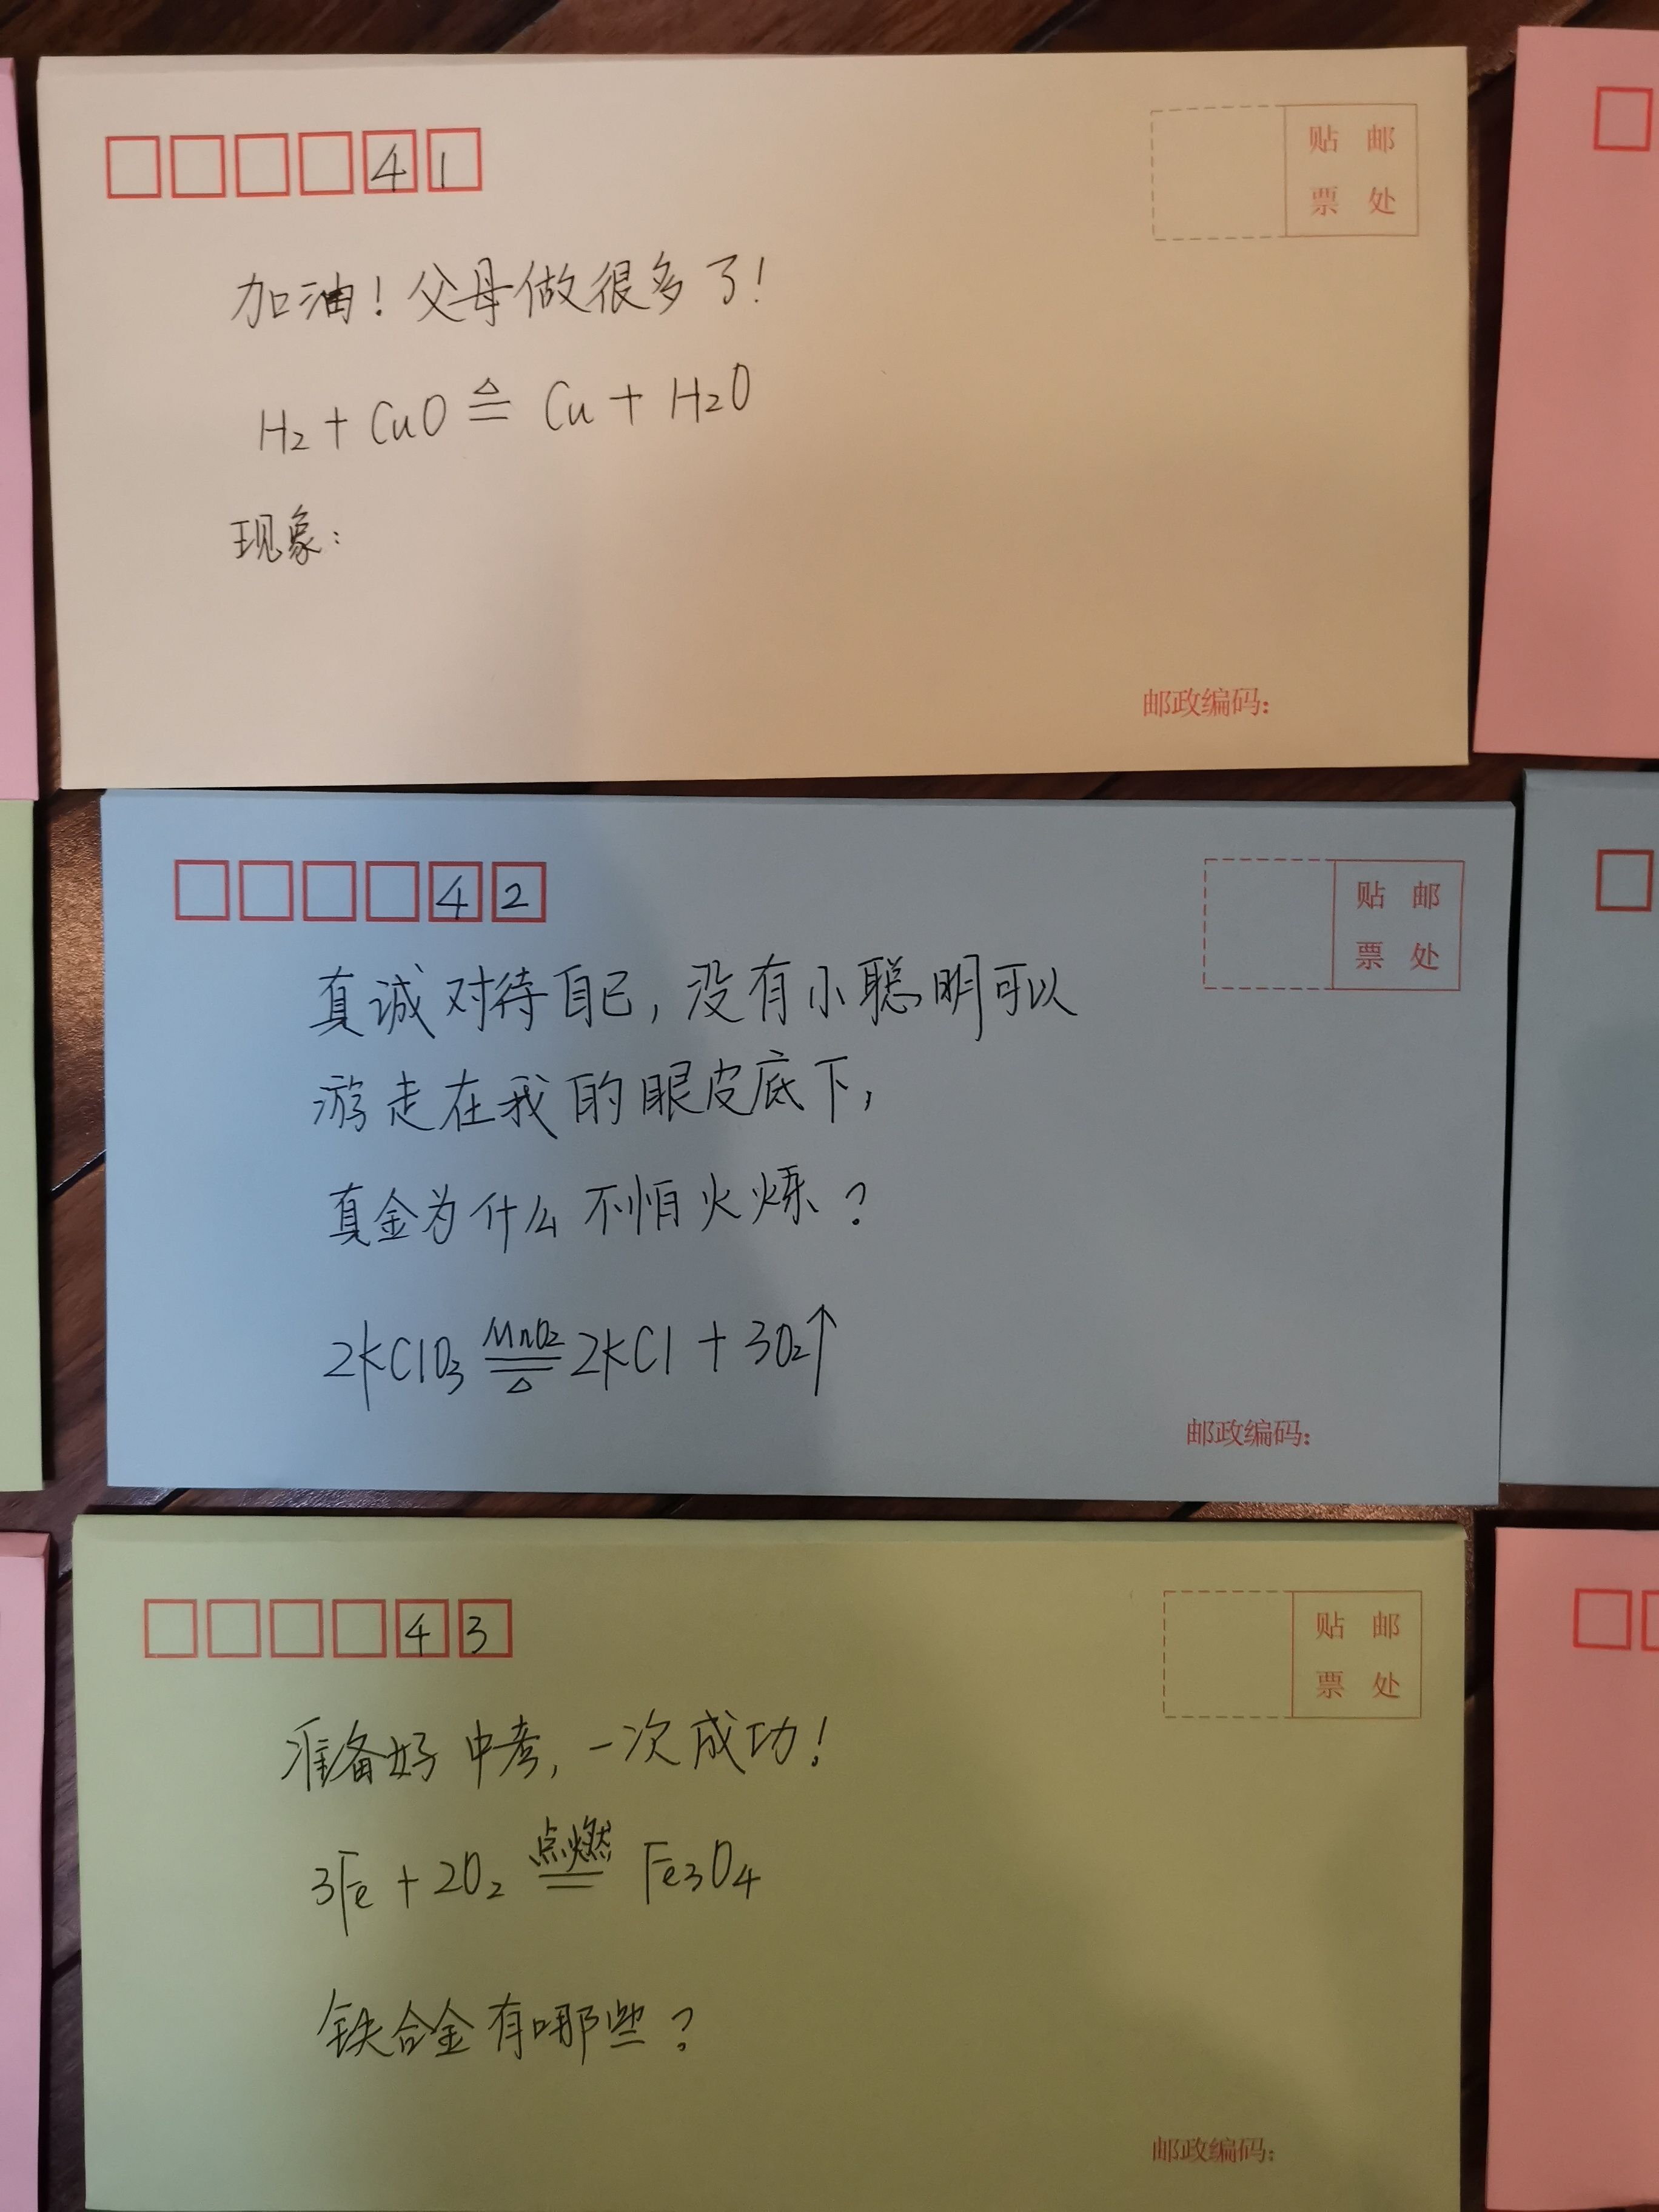 41
贴 邮
票 处
加油!父母做很多了!
H₂ + CuO ≜ Cu + H₂O
现象:
邮政编码:
42
贴 邮
票 处
真诚对待自己,没有小聪明可以
游走在我的眼皮底下,
真金为什么不怕火炼?
MnO₂
2KClO₃ == 2KCl + 3O₂↑
△
邮政编码:
43
贴 邮
票 处
准备好中考,一次成功!
点燃
3Fe + 2O₂ == Fe₃O₄
铁合金有哪些?
邮政编码: